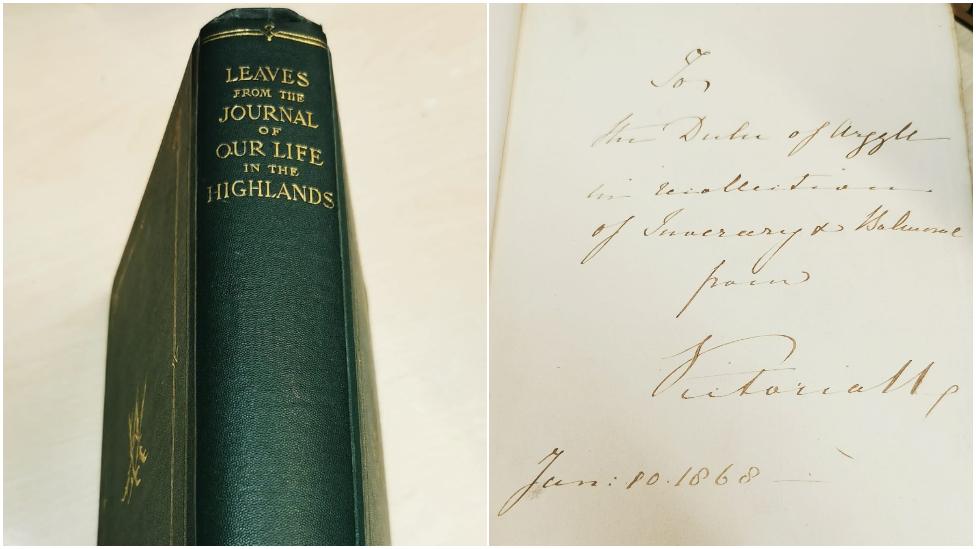 LEAVES
FROM THE
JOURNAL
OF
OUR LIFE
IN THE
HIGHLANDS
To
the Duke of Argyll
in recollection
of Inverary & Balmoral
from
Victoria R
Jan: 10. 1868